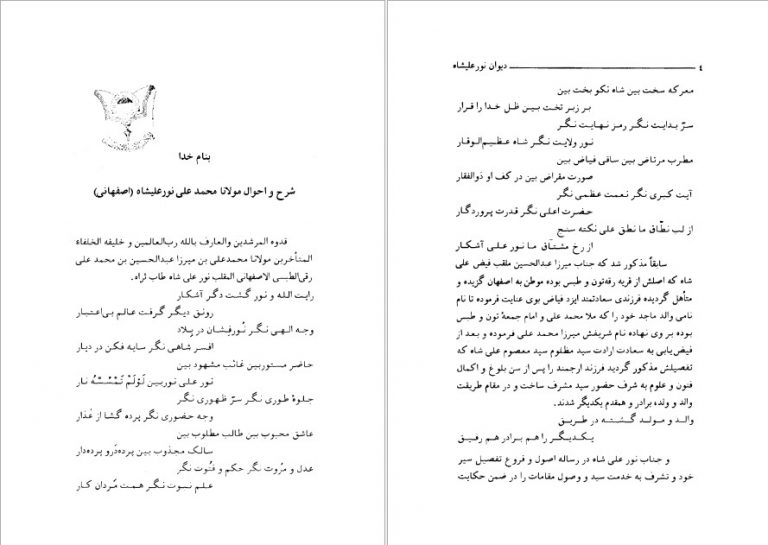 بنام خدا
شرح و احوال مولانا محمد علی نورعلیشاه (اصفهانی)
قدوه المرشدین والعارف بالله رب‌العالمین و خلیفه الخلفاء
المتأخرین مولانا محمدعلی بن میرزا عبدالحسین بن محمد علی
رقی‌الطبسی الاصفهانی الملقب نور علی شاه طاب ثراه.
رایت الله و نور گشت دگر آشکار
رونق دیگر گرفت عالم بی‌اعتبار
وجه الهی نگر نورفشان در بلاد
افسر شاهی نگر سایه فکن در دیار
حاضر مستوربین غائب مشهود بین
نور علی نوربین لَوْلَمْ تَمْسَسْهُ نار
جلوهٔ طوری نگر سرّ ظهوری نگر
وجه حضوری نگر پرده گشا از عَذار
عاشق محبوب بین طالب مطلوب بین
سالک مجذوب بین پرده‌دَرو پرده‌دار
عدل و مُروت نگر حکم و فتُوت نگر
علم نبوت نگر همت مَردان کار
٤ دیوان نورعلیشاه
معرکه سخت بین شاه نکو بخت بین
بر زبر تخت بین ظل خدا را قرار
سرّ بدایت نگر رمز نهایت نگر
نور ولایت نگر شاه عظیم‌الوقار
مطرب مرتاض بین ساقی فیاض بین
صورت مقراض بین در کف او ذوالفقار
آیت کبری نگر نعمت عظمی نگر
حضرت اعلی نگر قدرت پروردگار
از لب نطّاق ما نطق علی نکته سنج
از رخ مشتاق ما نور علی آشکار
سابقاً مذکور شد که جناب میرزا عبدالحسین ملقب فیض علی
شاه که اصلش از قریه رقه‌تون و طبس بوده موطن به اصفهان گزیده و
متأهل گردیده فرزندی سعادتمند ایزد فیاض بوی عنایت فرموده تا نام
نامی والد ماجد خود را که ملا محمد علی و امام جمعهٔ تون و طبس
بوده بر وی نهاده نام شریفش میرزا محمد علی فرموده و بعد از
فیض‌یابی به سعادت ارادت سید مظلوم سید معصوم علی شاه که
تفصیلش مذکور گردید فرزند ارجمند را پس از سن بلوغ و اکمال
فنون و علوم به شرف حضور سید مشرف ساخت و در مقام طریقت
والد و ولده برادر و همقدم یکدیگر شدند.
والد و مولد گشته در طریق
یکدیگر را هم برادر هم رفیق
و جناب نور علی شاه در رساله اصول و فروع تفصیل سیر
خود و تشرف به خدمت سید و وصول مقامات را در ضمن حکایت